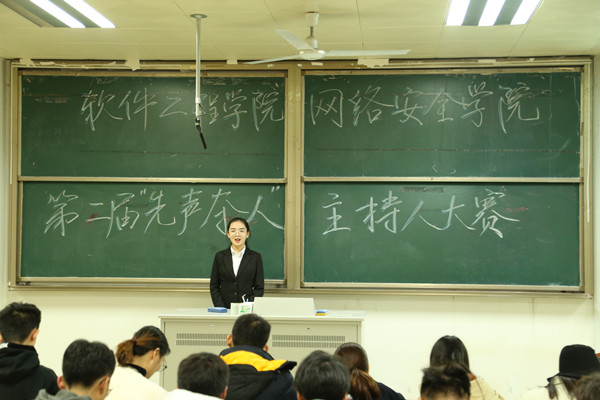 软件工程学院 网络安全学院
第二届"先声夺人" 主持人大赛